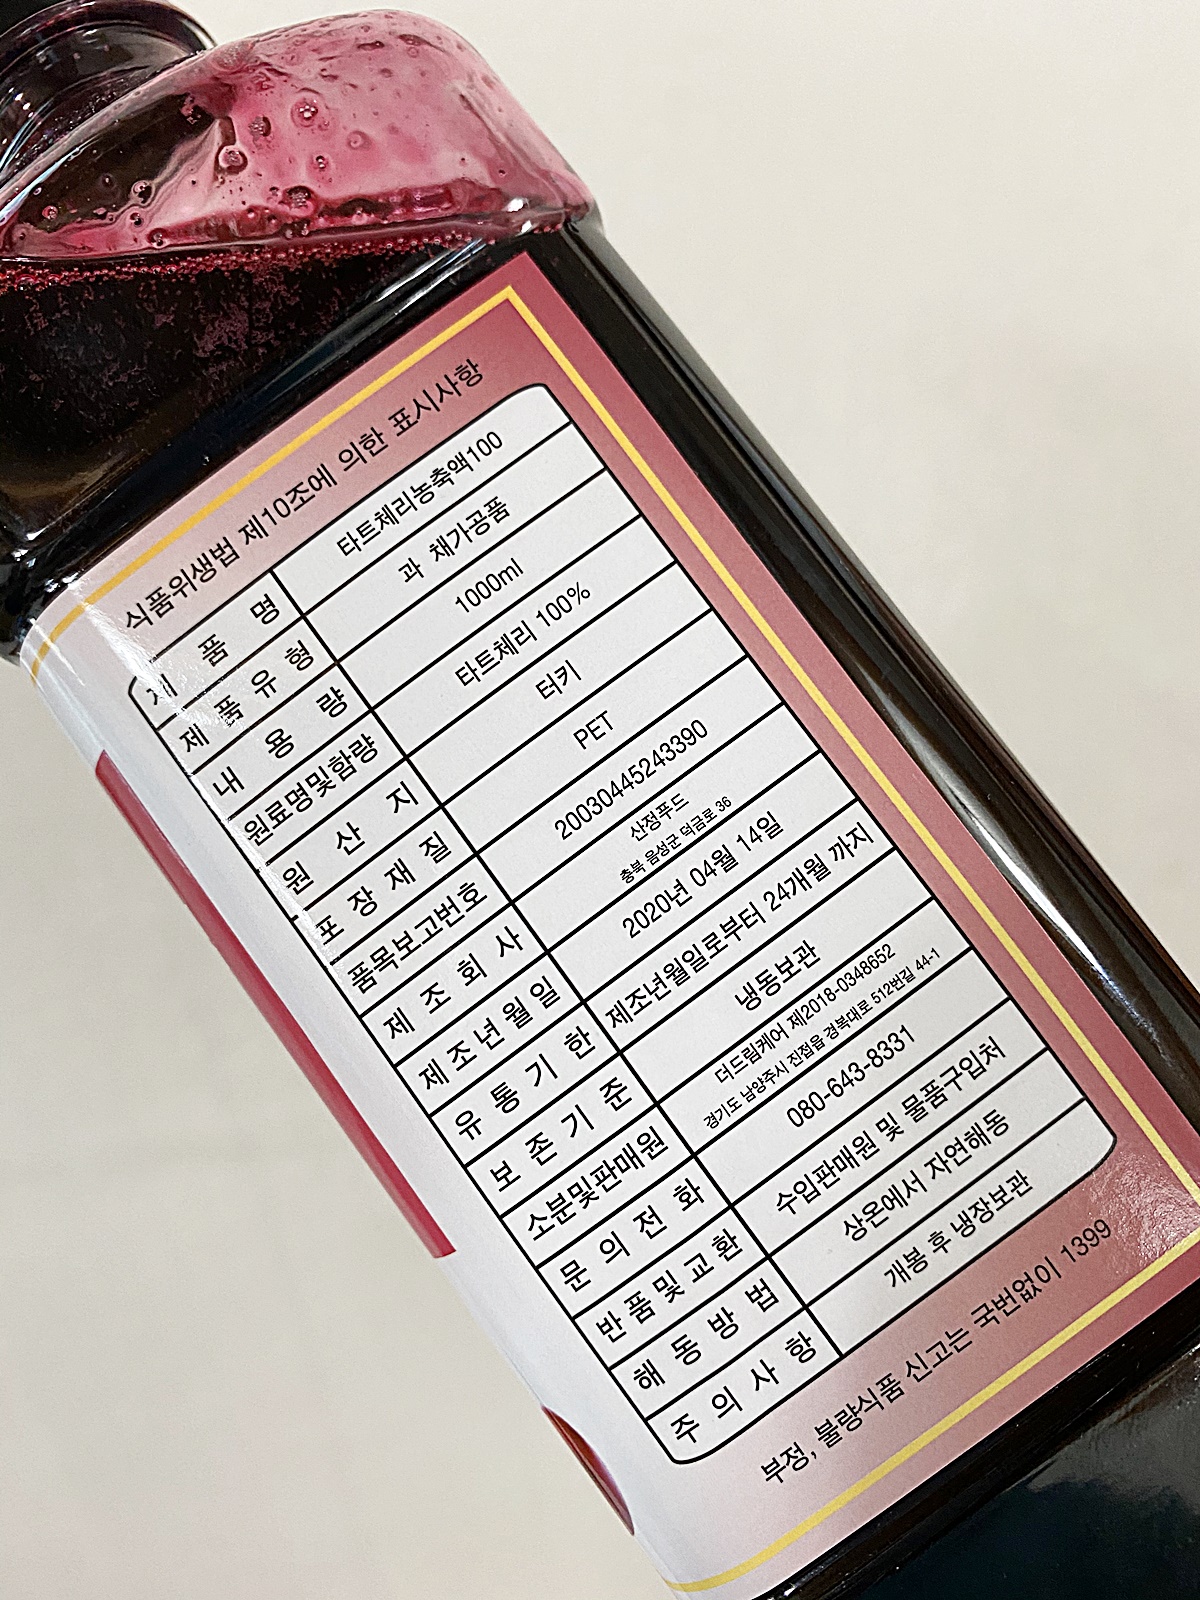 식품위생법 제10조에 의한 표시사항
제 품 명 타트체리농축액100
제 품 유 형 과 채가공품
내 용 량 1000ml
원료명및함량 타트체리 100%
원 산 지 터키
포 장 재 질 PET
품목보고번호 20030445243390
제 조 회 사 산정푸드
충북 음성군 덕금로 36
제 조 년 월 일 2020년 04월 14일
유 통 기 한 제조년월일로부터 24개월 까지
보 존 기 준 냉동보관
소분및판매원 더드림케어 제2018-0348652
경기도 남양주시 진접읍 경복대로 512번길 44-1
문 의 전 화 080-643-8331
반 품 및 교 환 수입판매원 및 물품구입처
해 동 방 법 상온에서 자연해동
주 의 사 항 개봉 후 냉장보관
부정, 불량식품 신고는 국번없이 1399